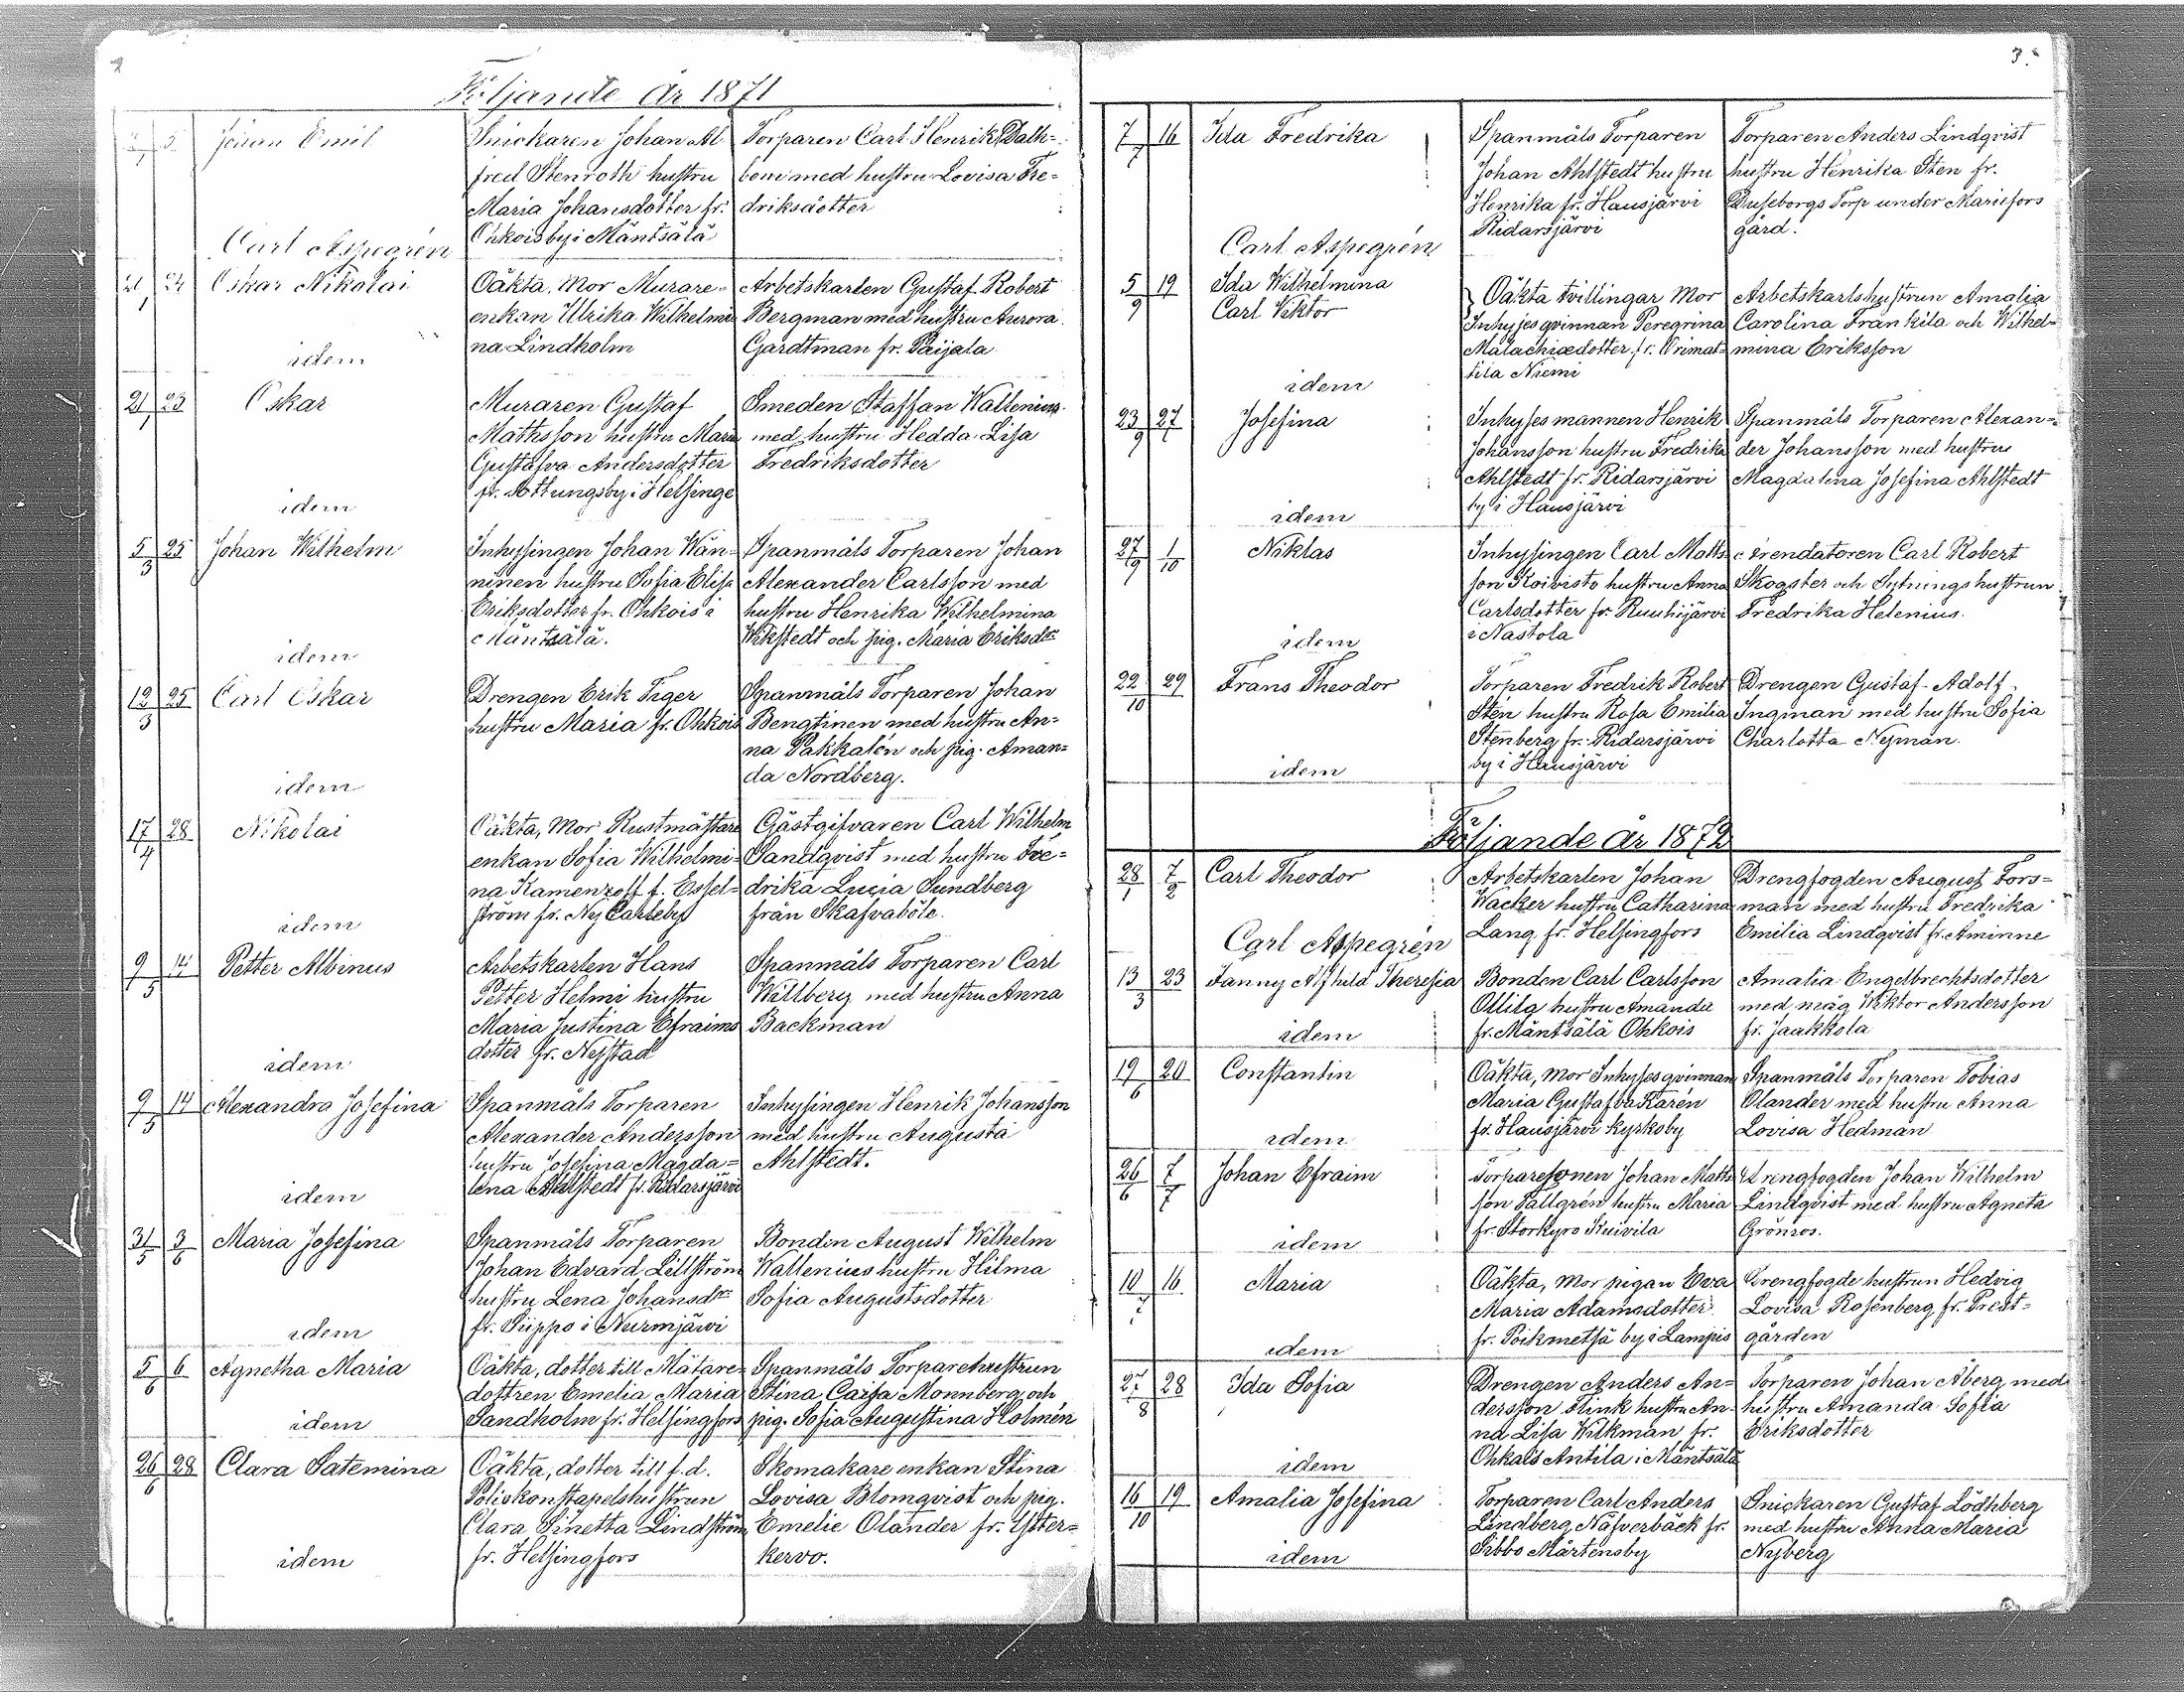 Följande År 1871
Emil
Snickaren Johan Al-
fred Stenroth hustru
Maria Johansdotter fr.
Ohkois by i Mäntsälä
Torparen Carl Henrik Dahl-
bom med hustru Lovisa Fre-
driksdotter
Carl Aspegrén
21/1 24 Oskar Nikolai
Oäkta, Mor Murare-
enkan Ulrika Wilhelmi
na Lindholm
Arbetskarlen Gustaf Robert
Bergman med hustru Aurora
Gardtman fr. Paijala
idem
21/1 23 Oskar
Muraren Gustaf
Mathsson hustru Maria
Gustafva Andersdotter
fr. Mottungsby i Helsinge
Smeden Staffan Wallenius
med hustru Hedda Lisa
Fredriksdotter
idem
5/3 25 Johan Wilhelm
Inhysingen Johan Wän-
ninen hustru Sofia Elisa
Eriksdotter fr. Ohkois i
Mäntsälä.
Spanmåls Torparen Johan
Alexander Carlsson med
hustru Henrika Wilhelmina
Wikstedt och pig. Maria Eriksdr
idem
12/3 25 Carl Oskar
Drengen Erik Tiger
hustru Maria fr. Ohkois
Spanmåls Torparen Johan
Bengtinen med hustru An-
na Pakkalén och pig. Aman-
da Nordberg.
idem
17/4 28 Nikolai
Oäkta, Mor Rustmästare
enkan Sofia Wilhelmi-
na Kamenzoff f. Essel-
ström fr. Ny Carleby
Gästgifvaren Carl Wilhelm
Sandqvist med hustru Fre-
drika Lucia Sundberg
från Skafvaböle.
idem
9/5 14 Petter Albinus
Arbetskarlen Hans
Petter Helmi hustru
Maria Justina Efraims
dotter fr. Nystad
Spanmåls Torparen Carl
Willberg med hustru Anna
Backman
idem
9/5 14 Alexandra Josefina
Spanmåls Torparen
Alexander Andersson
hustru Josefina Magda-
lena Ahlstedt fr. Ridarsjärvi
Inhysingen Henrik Johansson
med hustru Augusta
Ahlstedt.
idem
31/5 3/6 Maria Josefina
Spanmåls Torparen
Johan Edvard Lillström
hustru Lena Johansdr
fr. Siippo i Nurmjärvi
Bonden August Wilhelm
Wallenius hustru Hilma
Sofia Augustsdotter
idem
5/6 6 Agnetha Maria
Oäkta, dotter till Mätare-
dottren Emelia Maria
Sandholm fr. Helsingfors
Spanmåls Torparehustrun
Stina Caisa Monnberg och
pig. Sofia Augustina Holmén
idem
26/6 28 Clara Satemina
Oäkta, dotter till f.d.
Poliskonstapelshustrun
Clara Sinetta Lindström
fr. Helsingfors
Skomakare enkan Stina
Lovisa Blomqvist och pig.
Emelie Olander fr. Ytter-
kervo.
idem
3.
7/7 16 Ida Fredrika
Spanmåls Torparen
Johan Ahlstedt hustru
Henrika fr. Hausjärvi
Ridarsjärvi
Torparen Anders Lindqvist
hustru Henrika Sten fr.
Buseborgs Torp under Mariefors
gård.
Carl Aspegrén
5/9 19 Ida Wilhelmina
Carl Viktor
Oäkta tvillingar Mor
Inhyses qvinnan Peregrina
Malachiædotter fr. Orimat-
tila Niemi
Arbetskarlshustrun Amalia
Carolina Frankila och Wilhel-
mina Eriksson
idem
23/9 27 Josefina
Inhyses mannen Henrik
Johansson hustru Fredrika
Ahlstedt fr. Ridarsjärvi
by i Hausjärvi
Spanmåls Torparen Alexan-
der Johansson med hustru
Magdalena Josefina Ahlstedt
idem
27/9 1/10 Niklas
Inhysingen Carl Matts-
son Koivisto hustru Anna
Carlsdotter fr. Ruuhijärvi
i Nastola
Arendatoren Carl Robert
Skogster och Sytnings hustrun
Fredrika Helenius.
idem
22/10 29 Frans Theodor
Torparen Fredrik Robert
Sten hustru Rosa Emilia
Stenberg fr. Ridarsjärvi
by i Hausjärvi
Drengen Gustaf Adolf
Ingman med hustru Sofia
Charlotta Nyman.
idem
Följande år 1872
28/1 7/2 Carl Theodor
Arbetskarlen Johan
Wacker hustru Catharina
Lang fr. Helsingfors
Drengfogden August Fors-
man med hustru Fredrika
Emilia Lindqvist fr. Aminne
Carl Aspegrén
13/3 23 Fanny Alfhild Theresia
Bonden Carl Carlsson
Ollila hustru Amanda
fr. Mäntsälä Ohkois
Amalia Engelbrechtsdotter
med måg Wiktor Andersson
fr. Jaakkola
idem
19/6 20 Constantin
Oäkta, mor Inhyses qvinnan
Maria Gustafva Karén
fr. Hausjärvi kyrkoby
Spanmåls Torparen Tobias
Olander med hustru Anna
Lovisa Hedman
idem
26/6 7/7 Johan Efraim
Torparesonen Johan Matts
son Tallgrén hustru Maria
fr. Storkyro Kuivila
Drengfogden Johan Wilhelm
Lindqvist med hustru Agneta
Grönros.
idem
10/7 16 Maria
Oäkta, mor pigan Eva
Maria Adamsdotter
fr. Poikmetsä by i Lampis
Drengfogde hustrun Hedvig
Lovisa Rosenberg fr. Prest-
gården
idem
27/8 28 Ida Sofia
Drengen Anders An-
dersson Flink hustru An-
na Lisa Wilkman fr.
Ohkois Antila i Mäntsälä
Torparen Johan Åberg med
hustru Amanda Sofia
Eriksdotter
idem
16/10 19 Amalia Josefina
Torparen Carl Anders
Lindberg Näfverbäck fr.
Sibbo Mårtensby
Snickaren Gustaf Lödhberg
med hustru Anna Maria
Nyberg
idem